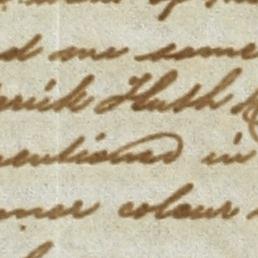 d me some
erick Huth
mentioned in
ner colour